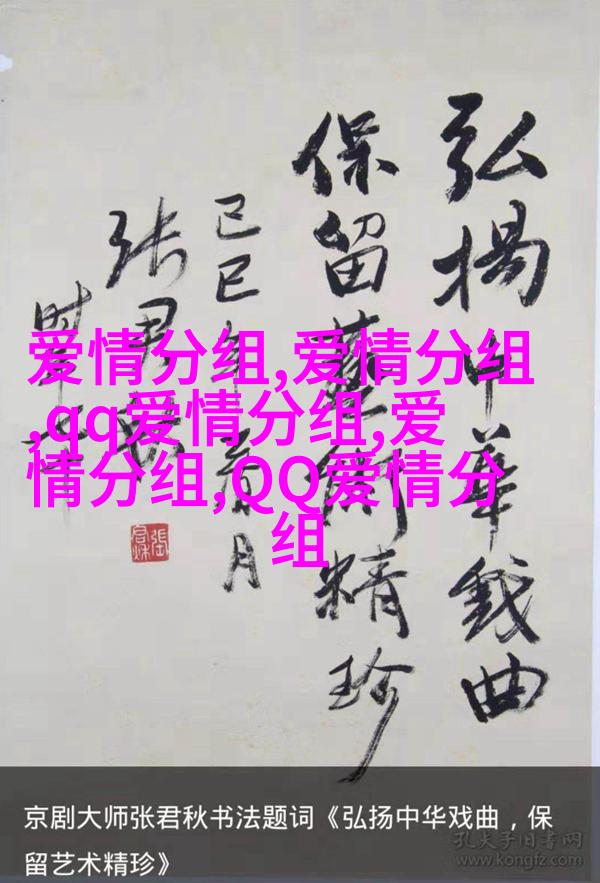 弘揚中华戏曲
保留藝術精珍
己巳年春月
张君秋
时年七十
張君秋
爱情分组,爱情分组
,qq爱情分组,爱
情分组,QQ爱情分
组
京剧大师张君秋书法题词《弘扬中华戏曲，保
留艺术精珍》
孔夫子旧书网
www.kongfz.com